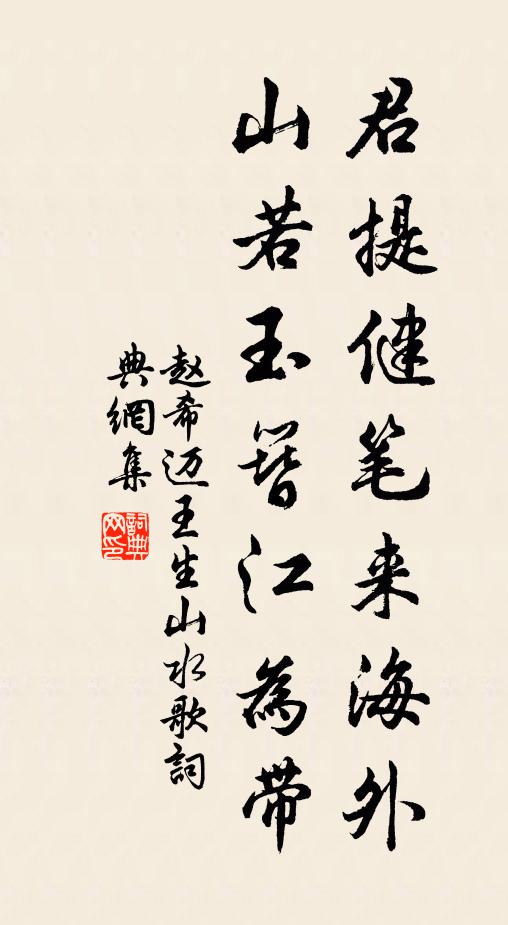 君提健笔来海外
山若玉簪江為带
赵希迈王生山水歌詞
典網集
詞典网印